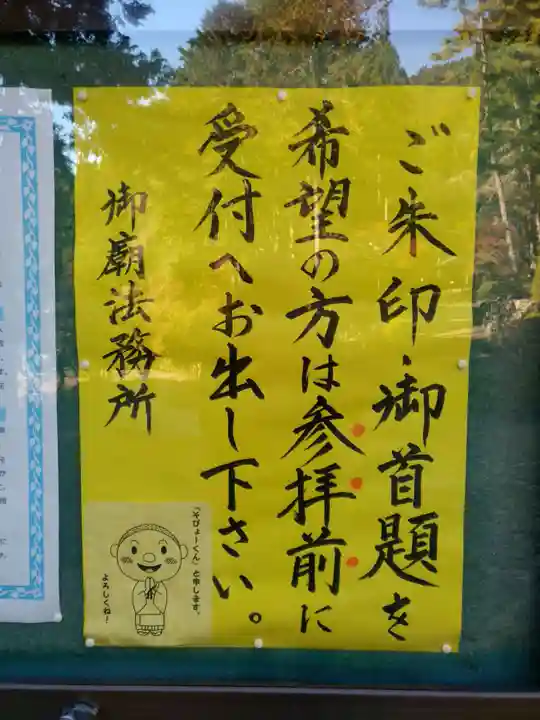 ご朱印・御首題を
希望の方は参拝前に
受付へお出し下さい。
御廟法務所
「そびょーくん」と申します。
よろしくねー